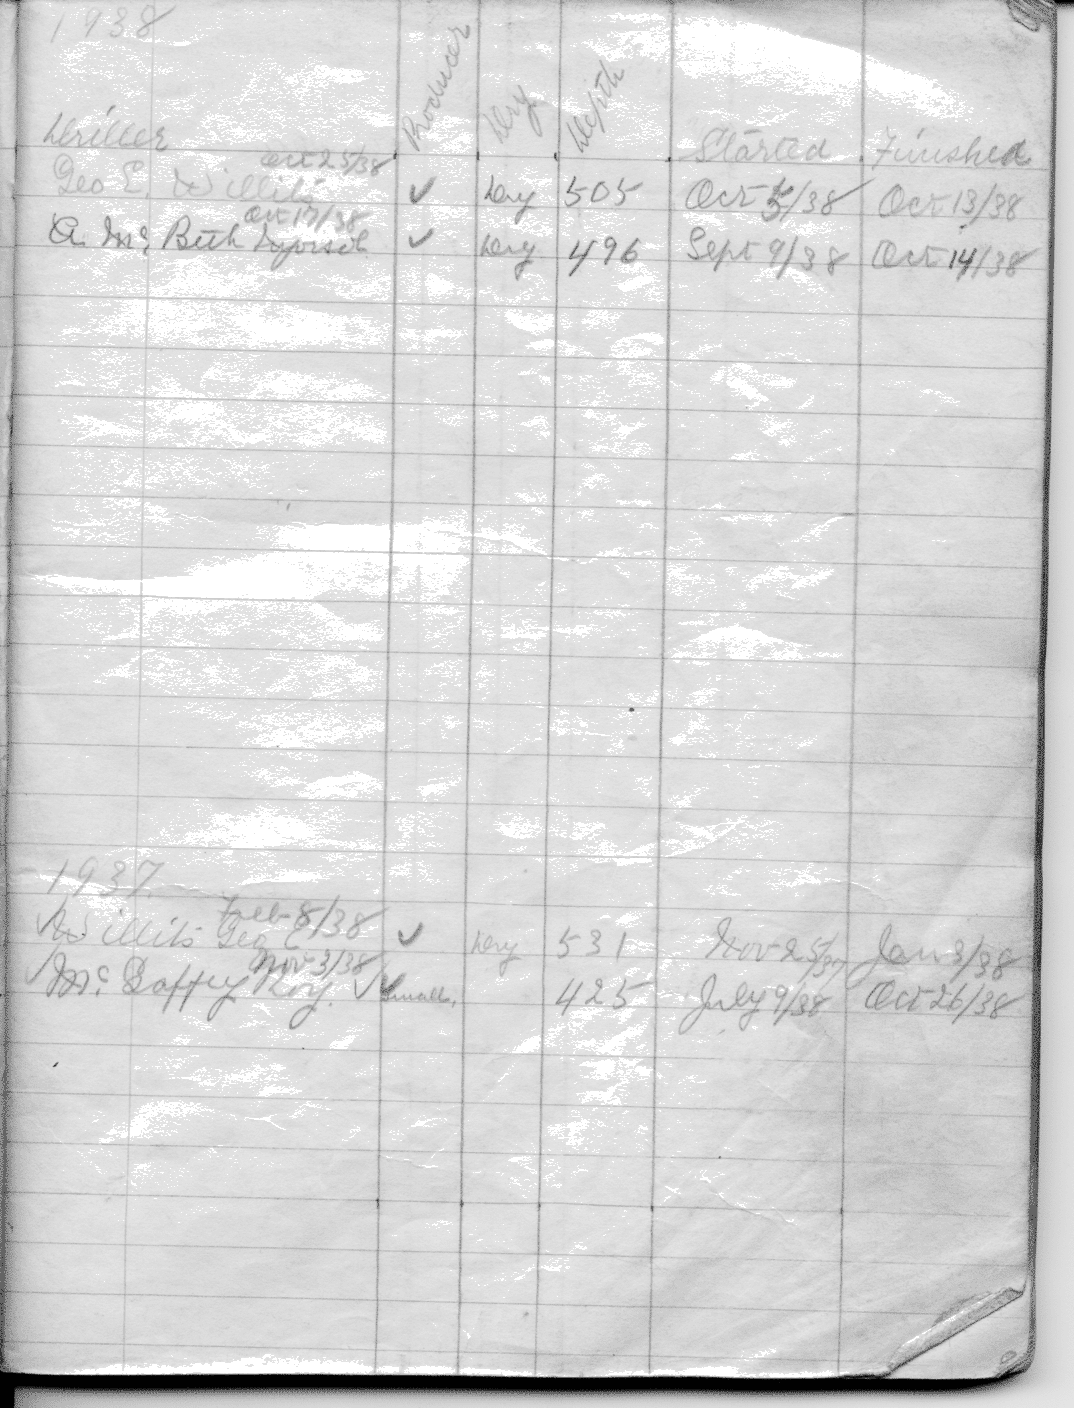 1938
Driller Producer Dry Depth Started Finished
Oct 25/38
Geo E. Willits ✓ Dry 505 Oct 5/38 Oct 13/38
Oct 17/38
A. Mc Beth ✓ Dry 496 Sept 9/38 Oct 14/38
1937
Feb 8/38
✓ Willits Geo E ✓ Dry 531 Nov 25/37 Jan 3/38
Nov 3/38
✓ Mc Roy. ✓ Small. 425 July 9/38 Oct 26/38